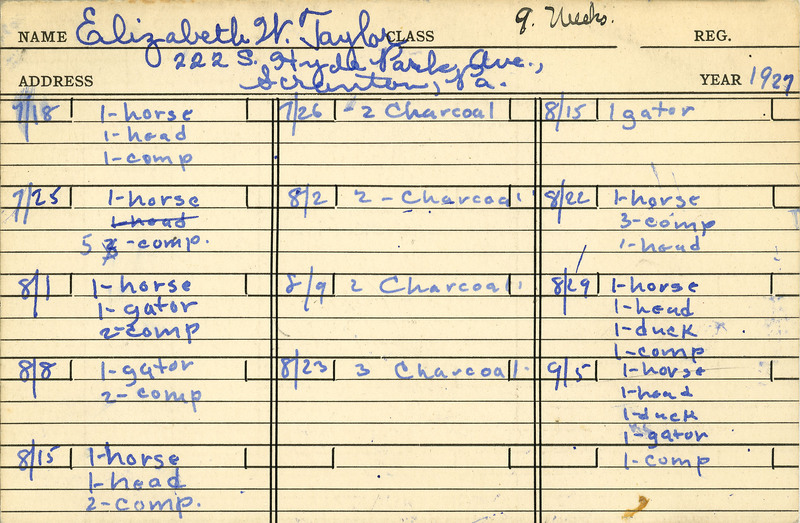 NAME Elizabeth W. Taylor CLASS 9. Weeks. REG.
222 S. Hyde Park Ave.,
ADDRESS Scranton, Pa. YEAR 1927
7/18 1-horse
1-head
1-comp
7/25 1-horse
1-head
5 -comp.
8/1 1-horse
1-gator
2-comp
8/8 1-gator
2-comp
8/15 1-horse
1-head
2-comp.
7/26 -2 Charcoal
8/2 2 - Charcoal
8/9 2 Charcoal
8/23 3 Charcoal
8/15 1 gator
8/22 1-horse
3-comp
1-head
8/29 1-horse
1-head
1-duck
1-comp
9/5 1-horse
1-head
1-duck
1-gator
1-comp